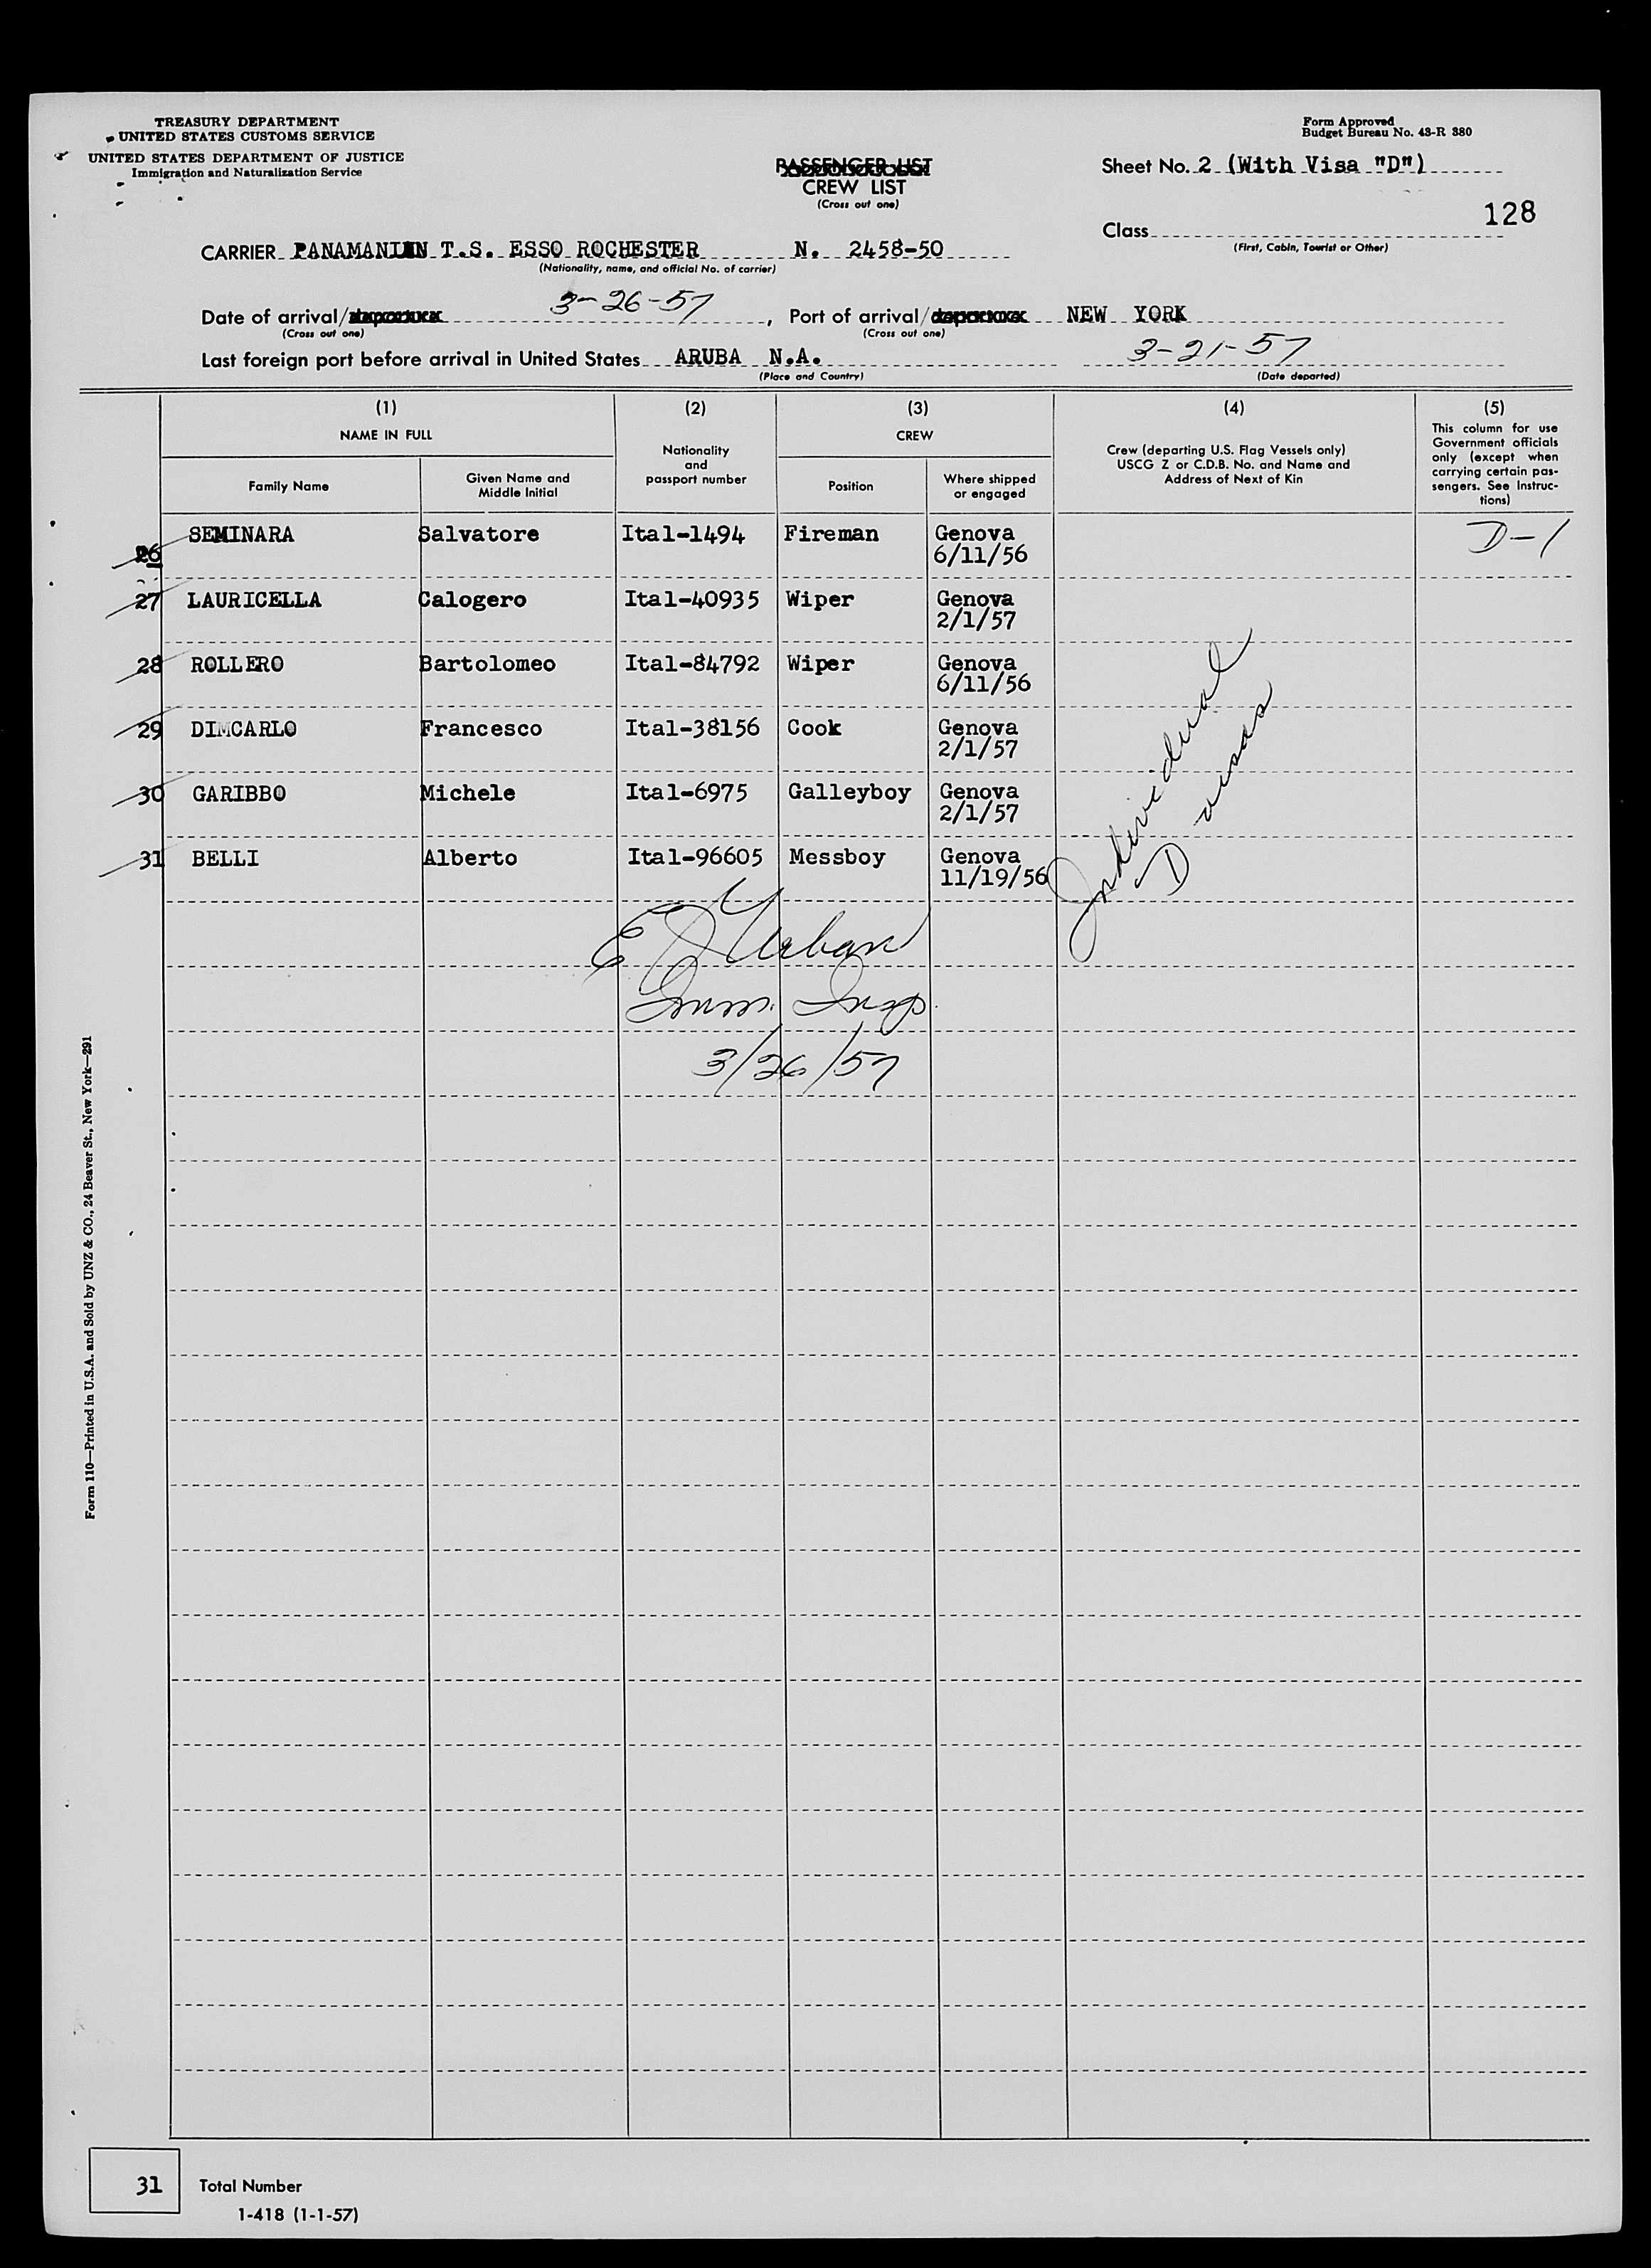 TREASURY DEPARTMENT
UNITED STATES CUSTOMS SERVICE
UNITED STATES DEPARTMENT OF JUSTICE
Immigration and Naturalization Service
Form Approved
Budget Bureau No. 43-R 380
PASSENGER LIST
CREW LIST
(Cross out one)
Sheet No. 2 (With Visa "D")
128
Class
(First, Cabin, Tourist or Other)
CARRIER PANAMANIAN T.S. ESSO ROCHESTER N. 2458-50
(Nationality, name, and official No. of carrier)
Date of arrival/departure 3-26-57, Port of arrival/departure NEW YORK
(Cross out one) (Cross out one)
Last foreign port before arrival in United States ARUBA N.A. 3-21-57
(Place and Country) (Date departed)
(1) (2) (3) (4) (5)
NAME IN FULL
Family Name
Given Name and
Middle Initial
Nationality
and
passport number
CREW
Position
Where shipped
or engaged
Crew (departing U.S. Flag Vessels only)
USCG Z or C.D.B. No. and Name and
Address of Next of Kin
This column for use
Government officials
only (except when
carrying certain pas-
sengers. See Instruc-
tions)
26 SEMINARA Salvatore Ital-1494 Fireman Genova D-1
6/11/56
27 LAURICELLA Calogero Ital-40935 Wiper Genova
2/1/57
28 ROLLERO Bartolomeo Ital-84792 Wiper Genova
6/11/56
29 DI CARLO Francesco Ital-38156 Cook Genova
2/1/57
30 GARIBBO Michele Ital-6975 Galleyboy Genova
2/1/57
31 BELLI Alberto Ital-96605 Messboy Genova
11/19/56
Individual
D visas
E J Urban
Imm. Insp.
3/26/57
Form 110—Printed in U.S.A. and Sold by UNZ & CO., 24 Beaver St., New York—291
31 Total Number
1-418 (1-1-57)